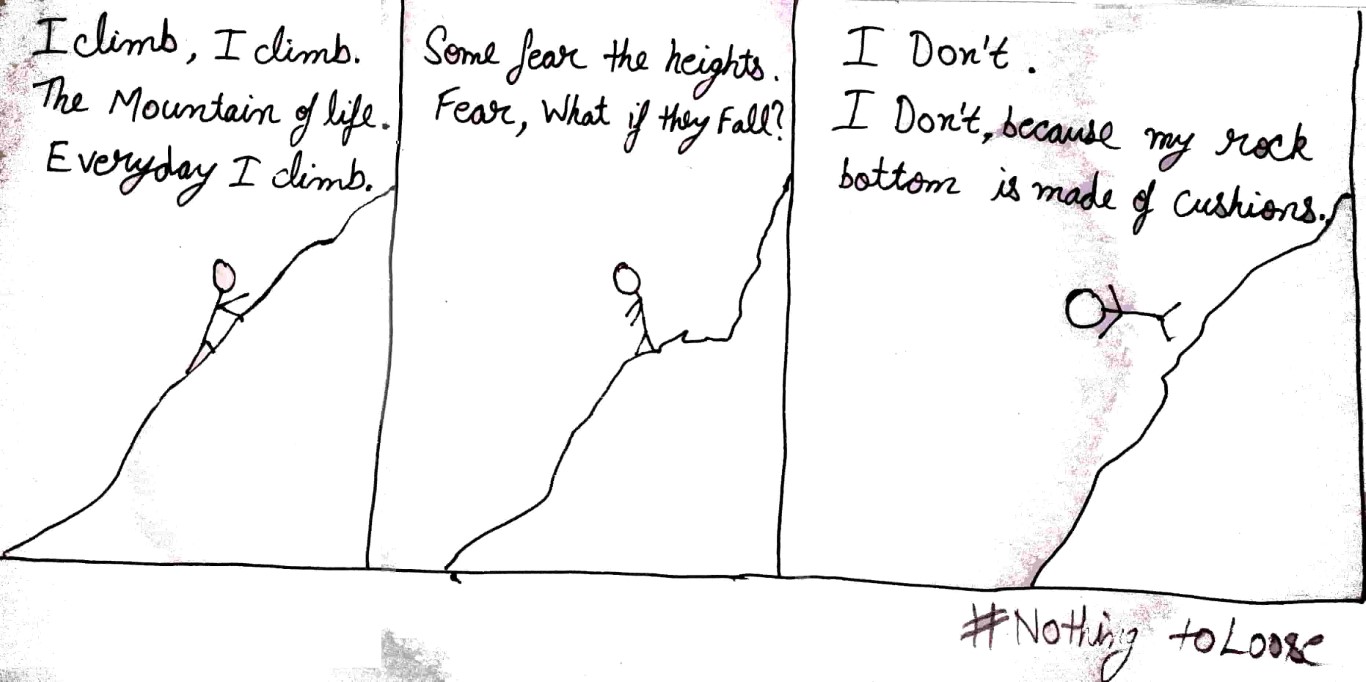 I climb, I climb.
The Mountain of life.
Everyday I climb.
Some fear the heights.
Fear, What if they Fall?
I Don't.
I Don't, because my rock
bottom is made of cushions.
#Nothing to Loose